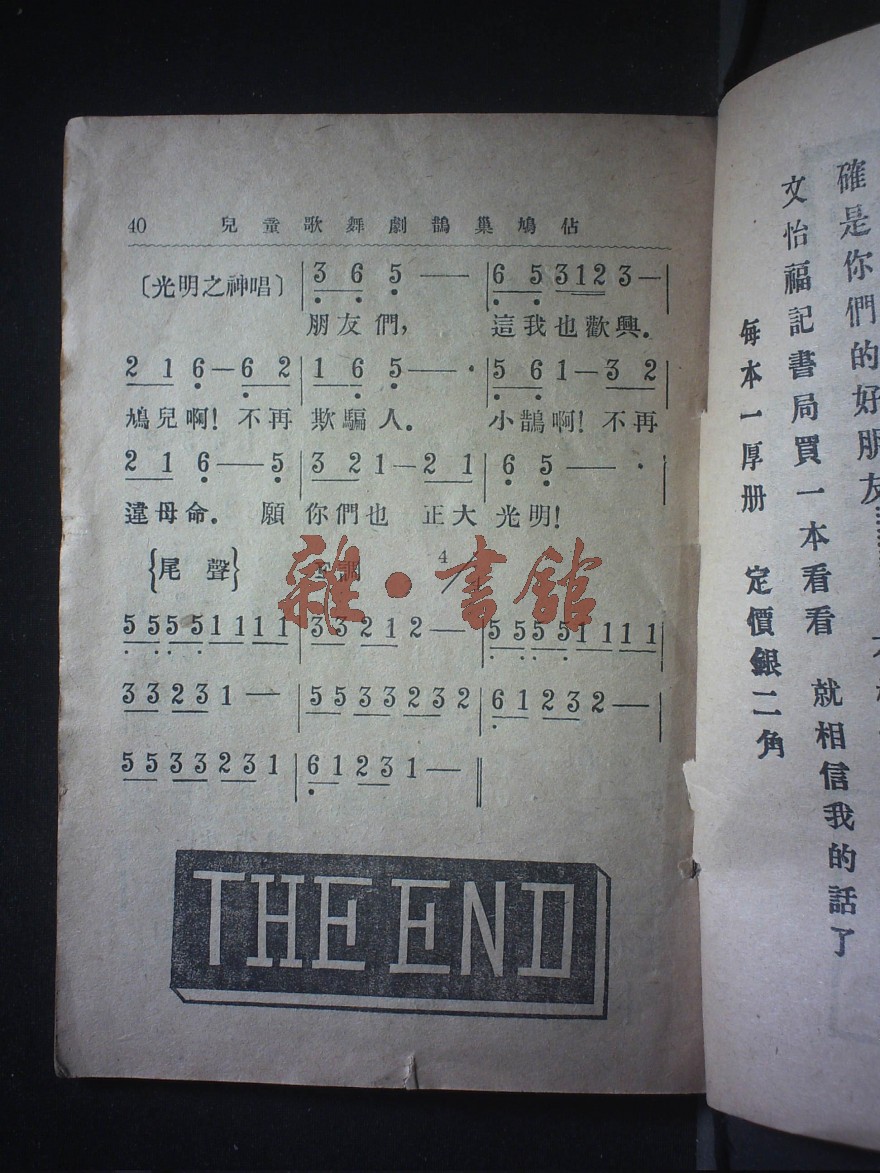 40 兒童歌舞劇鵲巢鳩佔
〔光明之神唱〕 3 6 5 — — | 6 5 3 1 2 3 —
朋友們， 這我也歡興．
2 1 6 — 6 2 | 1 6 5 — — · | 5 6 1 — 3 2
鳩兒啊！不再 欺騙人． 小鵲啊！不再
2 1 6 — — 5 | 3 2 1 — 2 1 | 6 5 — — ·
違母命． 願 你們也 正大 光明！
{尾聲} 調 4/4
5 5 5 5 1 1 1 1 | 3 3 2 1 2 — | 5 5 5 5 1 1 1 1
3 3 2 3 1 — | 5 5 3 3 2 3 2 | 6 1 2 3 2 —
5 5 3 3 2 3 1 | 6 1 2 3 1 — ‖
THE END
雜·書館
確是你們的好朋友
文怡福記書局買一本看看 就相信我的話了
每本一厚册 定價銀二角